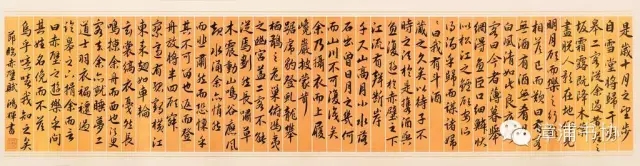 是歲十月之望步
自雪堂將歸于臨
皋二客從余過黃泥之
坂霜露既降木葉
盡脱人影在地仰見
明月顧而樂之行歌
相荅已而歎曰有客
無酒有酒無肴月
白風清如此良夜何
客曰今者薄暮舉
網得魚巨口細鱗狀
似松江之鱸顧安所
得酒乎歸而謀諸婦
婦曰我有斗酒
藏之久矣以待子不
時之須於是攜酒與
魚復遊於赤壁之下
江流有聲斷岸
千尺山高月小水落
石出曾日月之幾何
而江山不可復識矣
余乃攝衣而上履
巉巖披蒙茸
踞虎豹登虬龍攀
栖鶻之危巢俯馮夷
之幽宮蓋二客不能
從焉劃然長嘯草
木震動山鳴谷應風
起水涌余亦悄然
而悲肅然而恐凜乎
其不可留也反而登
舟時夜將半四顧寂
寥適有孤鶴橫江
東來翅如車輪
玄裳縞衣戛然長
鳴掠余舟而西也須臾
客去余亦就睡夢二
道士羽衣蹁躚過
臨皋之下揖余而言
曰赤壁之遊樂乎問
其姓名俛而不荅
嗚呼噫嘻我知之矣
後赤壁賦 鴻輝書
漳浦书协